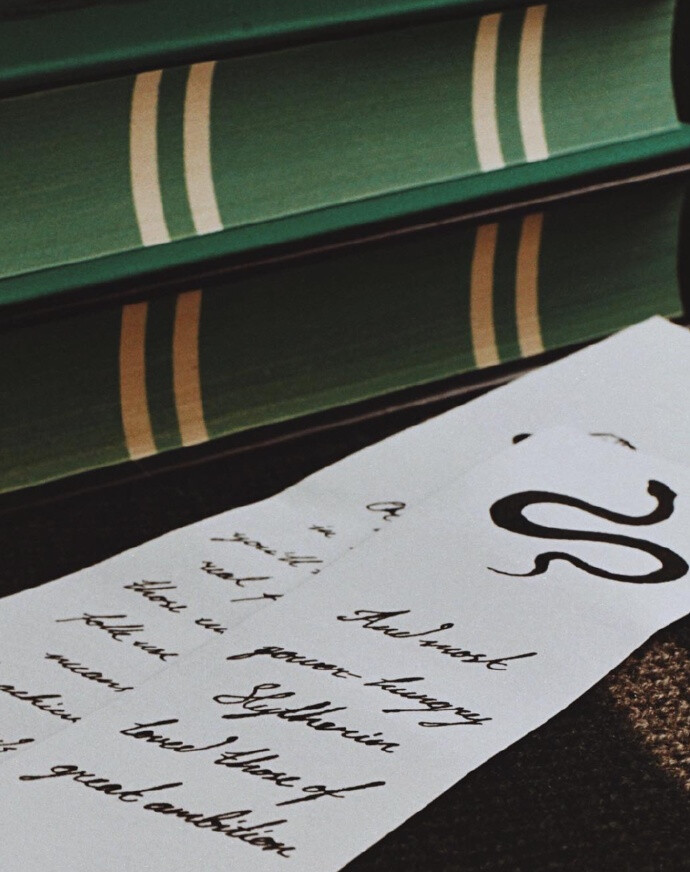 Or
in
you'll
real
those
folk use
means
And most
power hungry
Slytherin
loved those of
great ambition